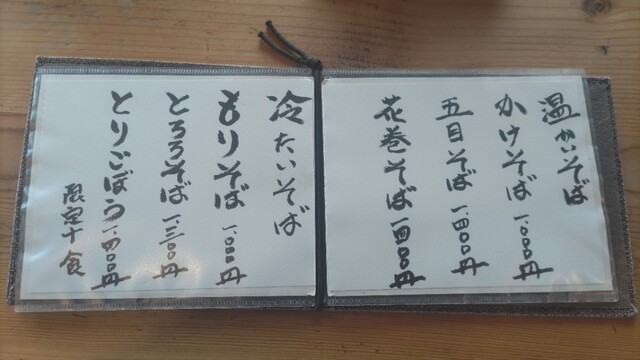 温かいそば
かけそば 一.〇〇〇円
五目そば 一.四〇〇円
花巻そば 一四〇〇円
冷たいそば
もりそば 一.〇〇〇円
とろろそば 一.三〇〇円
とりごぼう 一.四〇〇円
限定十食